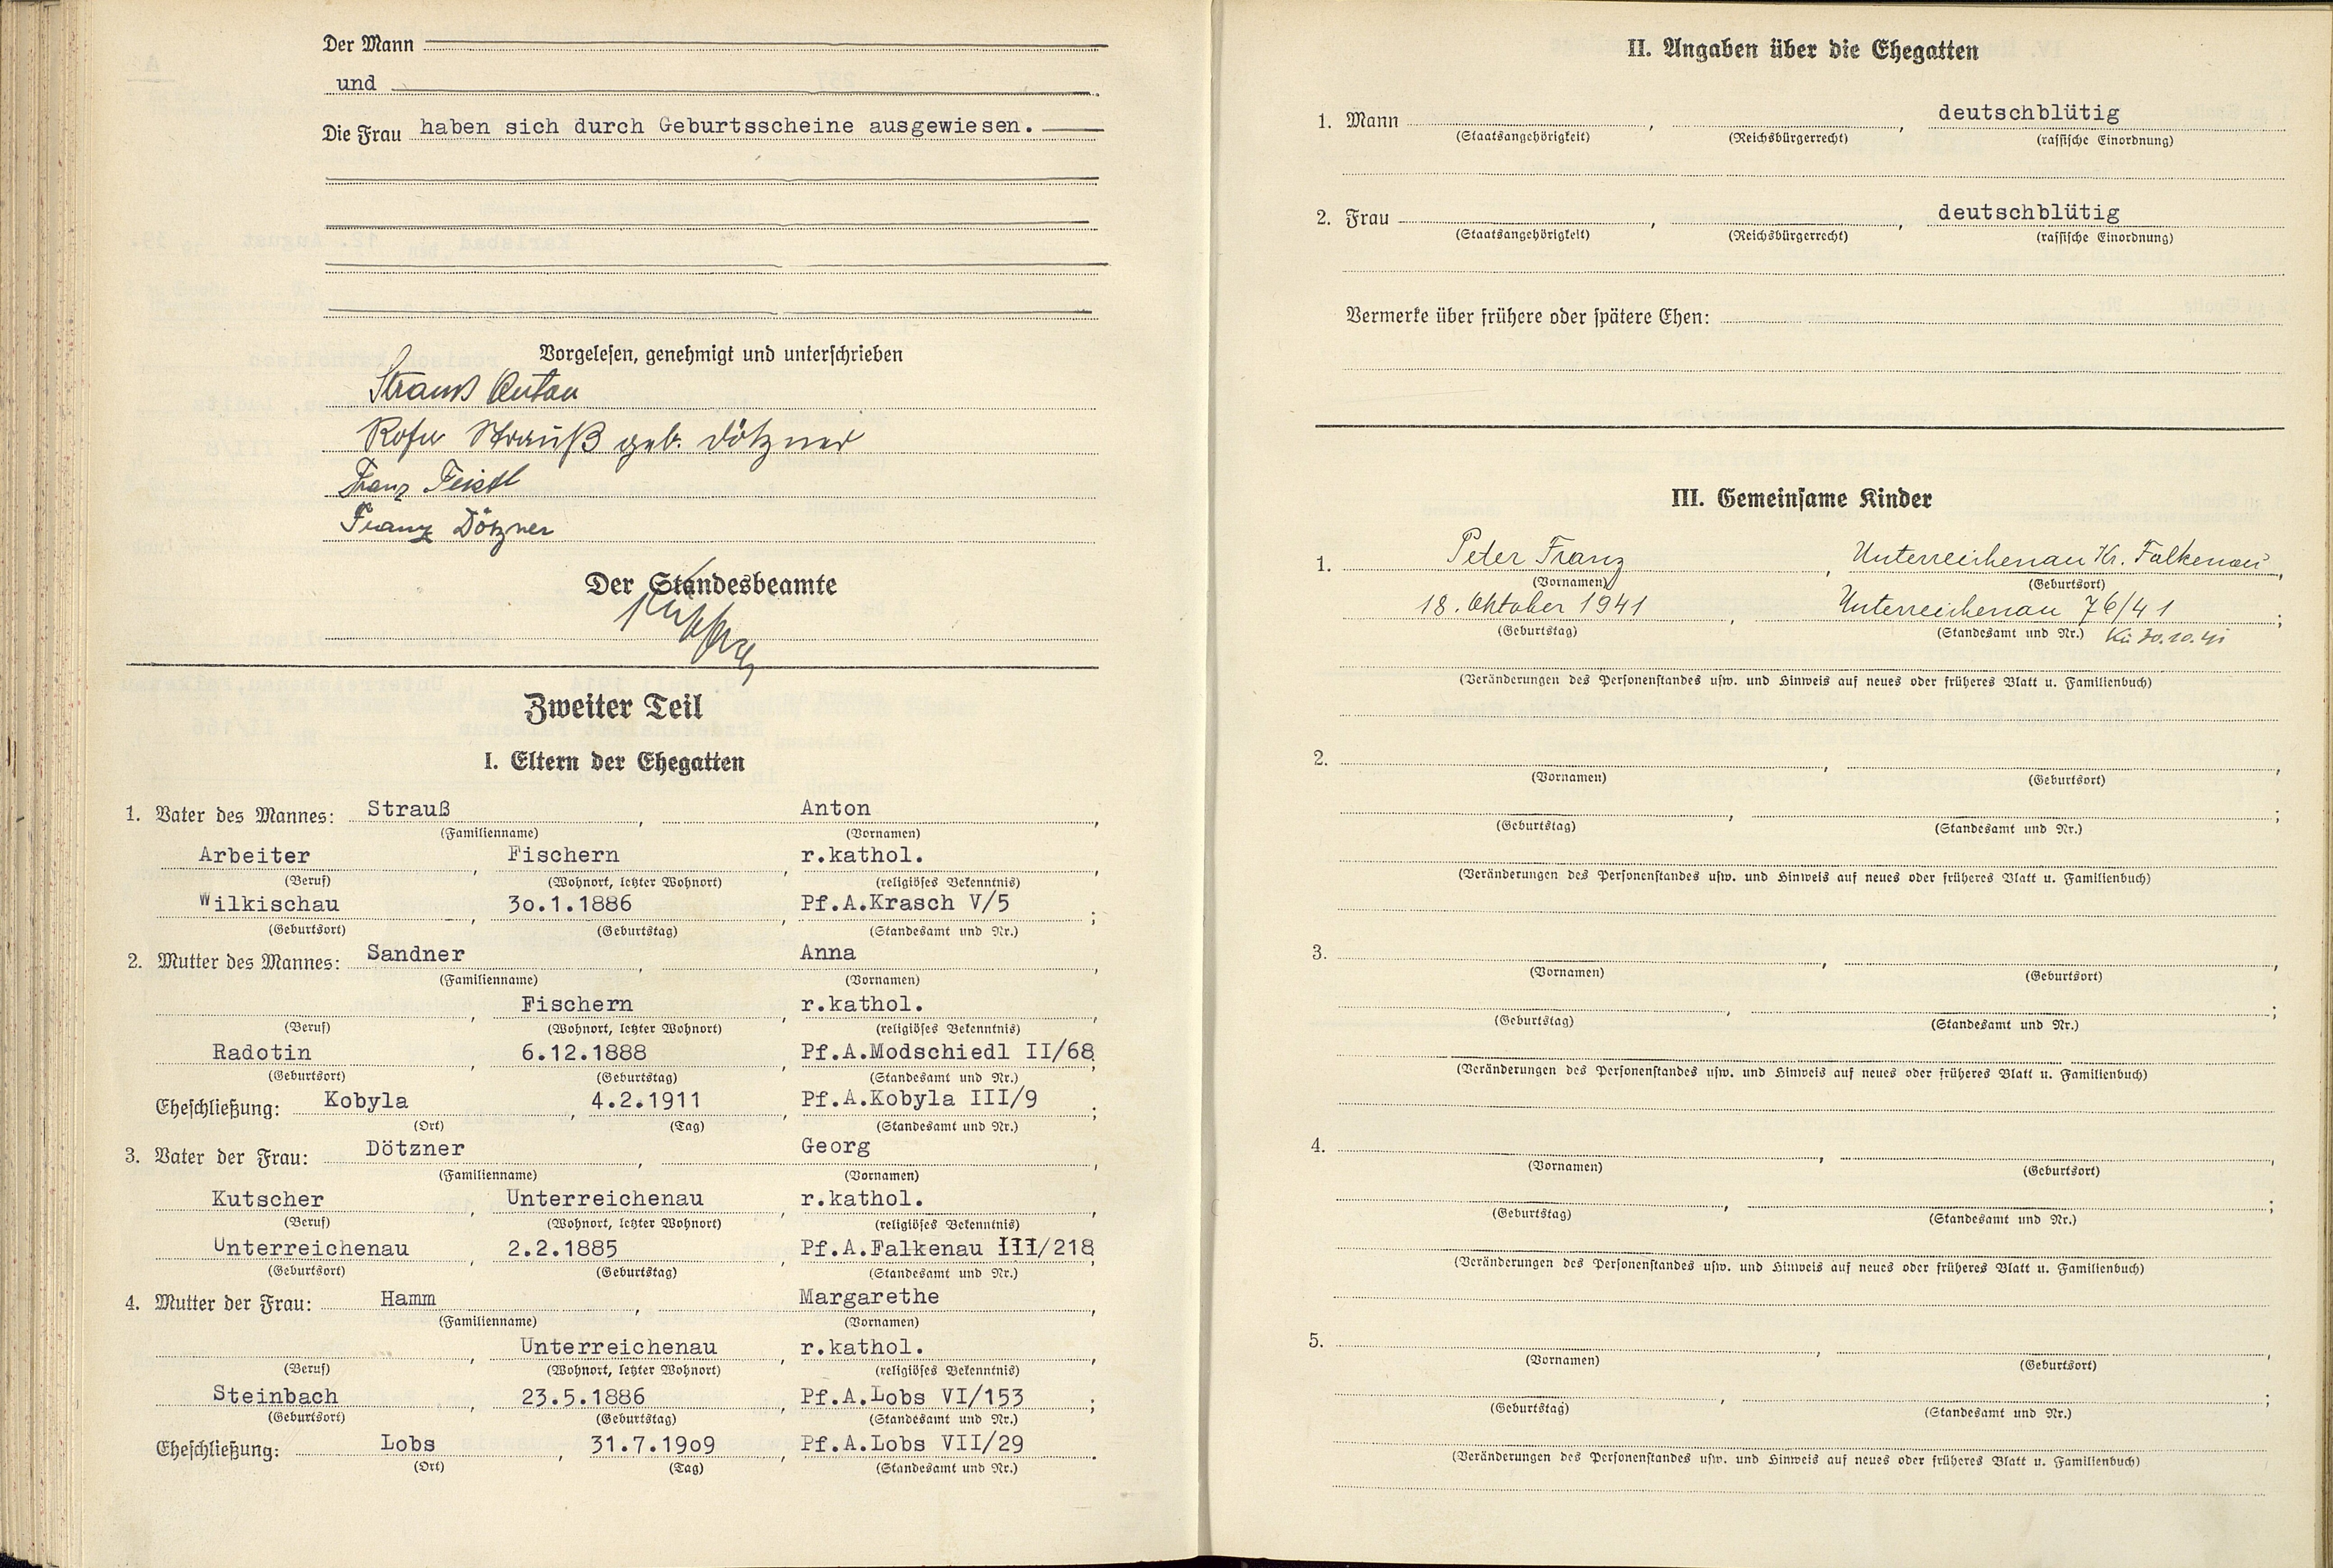 Der Mann
und
Die Frau haben sich durch Geburtsscheine ausgewiesen.
Vorgelesen, genehmigt und unterschrieben
Strauß Anton
Rosa Strauß geb. Dötzner
Franz Feistl
Franz Dötzner
Der Standesbeamte
Zweiter Teil
I. Eltern der Ehegatten
1. Vater des Mannes: Strauß , Anton ,
(Familienname) (Vornamen)
Arbeiter , Fischern , r.kathol. ,
(Beruf) (Wohnort, letzter Wohnort) (religiöses Bekenntnis)
Wilkischau , 30.1.1886 , Pf.A.Krasch V/5 ;
(Geburtsort) (Geburtstag) (Standesamt und Nr.)
2. Mutter des Mannes: Sandner , Anna ,
(Familienname) (Vornamen)
, Fischern , r.kathol. ,
(Beruf) (Wohnort, letzter Wohnort) (religiöses Bekenntnis)
Radotin , 6.12.1888 , Pf.A.Modschiedl II/68 ;
(Geburtsort) (Geburtstag) (Standesamt und Nr.)
Eheschließung: Kobyla , 4.2.1911 , Pf.A.Kobyla III/9 ;
(Ort) (Tag) (Standesamt und Nr.)
3. Vater der Frau: Dötzner , Georg ,
(Familienname) (Vornamen)
Kutscher , Unterreichenau , r.kathol. ,
(Beruf) (Wohnort, letzter Wohnort) (religiöses Bekenntnis)
Unterreichenau , 2.2.1885 , Pf.A.Falkenau III/218 ;
(Geburtsort) (Geburtstag) (Standesamt und Nr.)
4. Mutter der Frau: Hamm , Margarethe ,
(Familienname) (Vornamen)
, Unterreichenau , r.kathol. ,
(Beruf) (Wohnort, letzter Wohnort) (religiöses Bekenntnis)
Steinbach , 23.5.1886 , Pf.A.Lobs VI/153 ;
(Geburtsort) (Geburtstag) (Standesamt und Nr.)
Eheschließung: Lobs , 31.7.1909 , Pf.A.Lobs VII/29 .
(Ort) (Tag) (Standesamt und Nr.)
II. Angaben über die Ehegatten
1. Mann , , deutschblütig
(Staatsangehörigkeit) (Reichsbürgerrecht) (rassische Einordnung)
2. Frau , , deutschblütig
(Staatsangehörigkeit) (Reichsbürgerrecht) (rassische Einordnung)
Vermerke über frühere oder spätere Ehen:
III. Gemeinsame Kinder
1. Peter Franz , Unterreichenau Kr. Falkenau ,
(Vornamen) (Geburtsort)
18. Oktober 1941 , Unterreichenau 76/41 ;
(Geburtstag) (Standesamt und Nr.) Kü 30.10.41
(Veränderungen des Personenstandes usw. und Hinweis auf neues oder früheres Blatt u. Familienbuch)
2. , ,
(Vornamen) (Geburtsort)
, ;
(Geburtstag) (Standesamt und Nr.)
(Veränderungen des Personenstandes usw. und Hinweis auf neues oder früheres Blatt u. Familienbuch)
3. , ,
(Vornamen) (Geburtsort)
, ;
(Geburtstag) (Standesamt und Nr.)
(Veränderungen des Personenstandes usw. und Hinweis auf neues oder früheres Blatt u. Familienbuch)
4. , ,
(Vornamen) (Geburtsort)
, ;
(Geburtstag) (Standesamt und Nr.)
(Veränderungen des Personenstandes usw. und Hinweis auf neues oder früheres Blatt u. Familienbuch)
5. , ,
(Vornamen) (Geburtsort)
, ;
(Geburtstag) (Standesamt und Nr.)
(Veränderungen des Personenstandes usw. und Hinweis auf neues oder früheres Blatt u. Familienbuch)